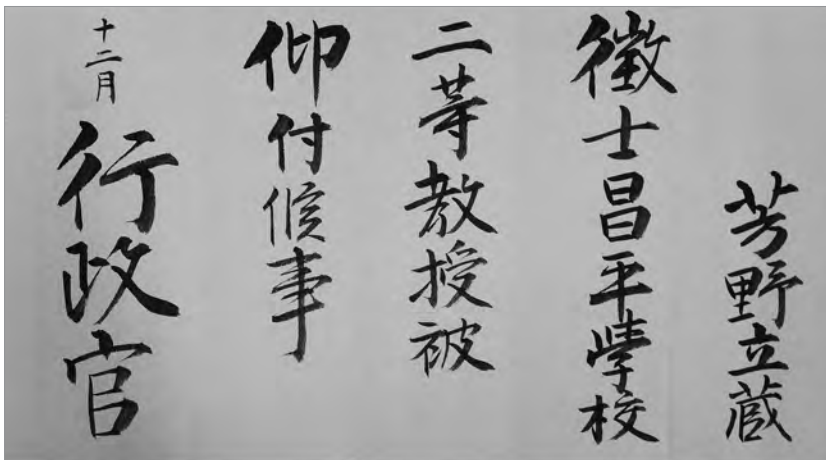 芳野立蔵
徴士昌平学校
二等教授被
仰付候事
十二月
行政官